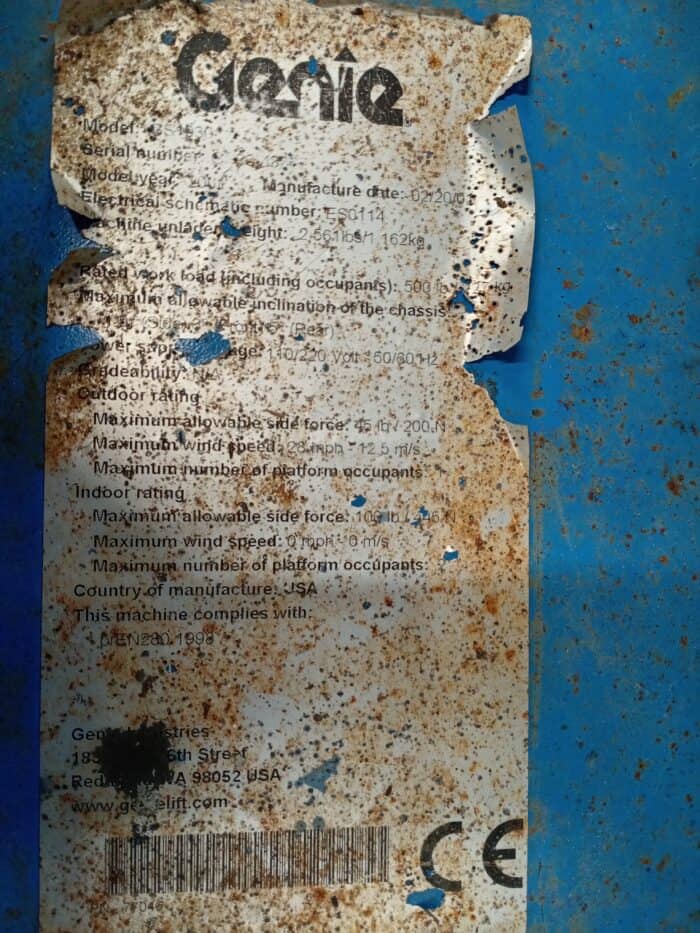 Genie
Model:
Serial number
Model year Manufacture date: 02/20/0
Electrical schematic number: ES0114
Machine unladen weight: 2,561lbs/1 162kg
Rated work load (including occupants): 500 lb kg
Maximum allowable inclination of the chassis:
(Rear)
Power 110/220 Volt 50/60 Hz
Gradeability: N/A
Outdoor rating
Maximum allowable side force: 45 lb / 200 N
Maximum wind speed: 28 mph - 12.5 m/s
Maximum number of platform occupants
Indoor rating
Maximum allowable side force: 100 lb /
Maximum wind speed: 0 mph - 0 m/s
Maximum number of platform occupants:
Country of manufacture: USA
This machine complies with:
prEN280:1998
Genie Industries
6th Street
WA 98052 USA
CE